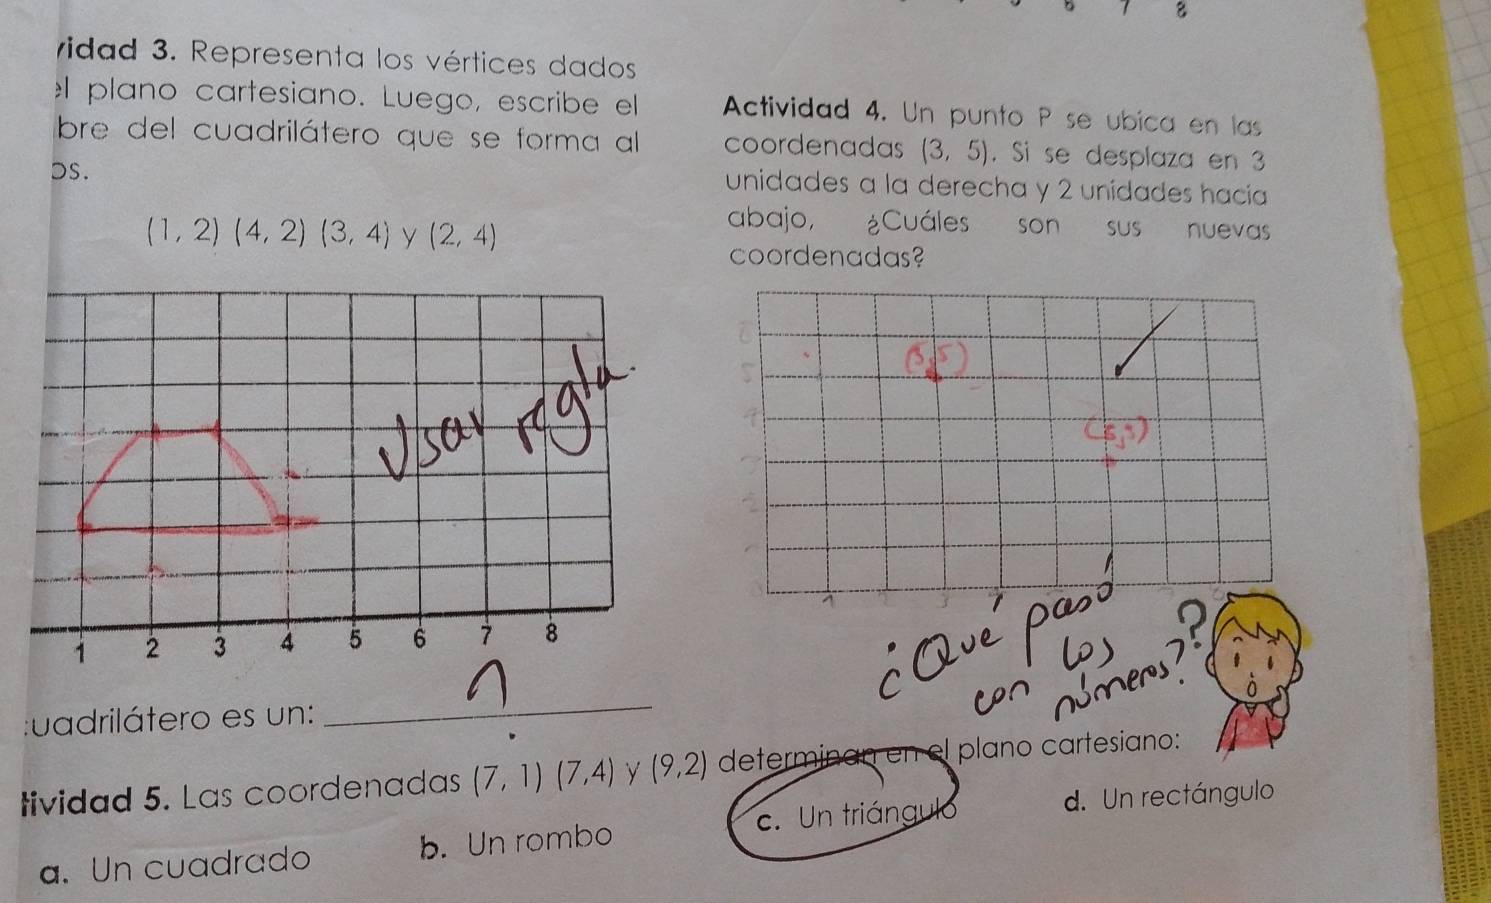 7 8
vidad 3. Representa los vértices dados
el plano cartesiano. Luego, escribe el
bre del cuadrilátero que se forma al
os.
(1, 2) (4, 2) (3, 4) y (2, 4)
Usar regla.
1 2 3 4 5 6 7 8
cuadrilátero es un:
Actividad 4. Un punto P se ubica en las
coordenadas (3, 5). Si se desplaza en 3
unidades a la derecha y 2 unidades hacia
abajo, ¿Cuáles son sus nuevas
coordenadas?
¿Qué pasó
con los
números??
tividad 5. Las coordenadas (7, 1) (7,4) y (9,2) determinan en el plano cartesiano:
a. Un cuadrado
b. Un rombo
c. Un triángulo
d. Un rectángulo